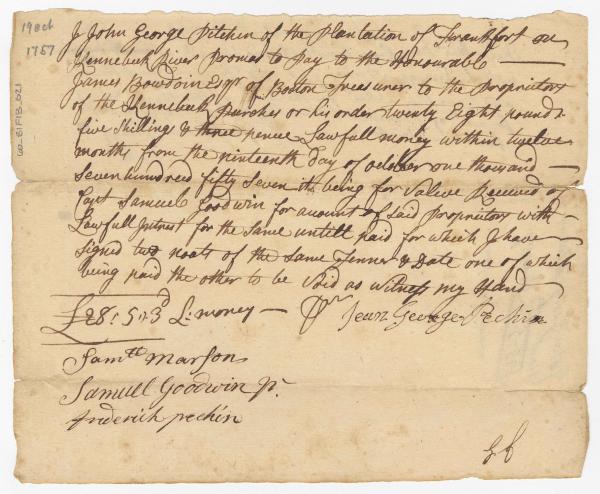 19 Oct
1757
60-81F13.021
I John George Pitchen of the Plantation of Frrankfort on
Kennebeck River Promes to Pay to the Honourable
James Bowdoin Esqr of Boston Treasurer to the Propritors
of the Kennebeck Purches or his order twenty Eight pounds
five Shillings & three pence Lawfull money within twelve
months from the ninteenth day of october one thousand
Seven hundred fifty Seven it being for Valive Received of
Capt Samuel Goodwin for amount of Said Propritors with
Lawfull Intrest for the Same untill paid for which I have
Signed two noats of the Same Tenner & Date one of which
being paid the other to be Void as witness my Hand
£28:5:3d L: money
Jean George Pechin
Samll Marson
Samuel Goodwin Jr.
frederich pechin